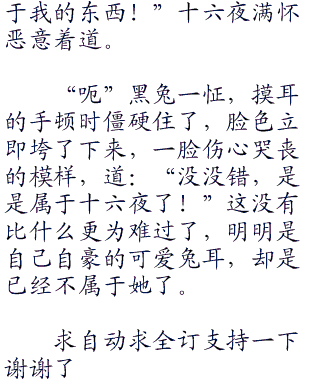 于我的东西！”十六夜满怀
恶意着道。
“呃”黑兔一怔，摸耳
的手顿时僵硬住了，脸色立
即垮了下来，一脸伤心哭丧
的模样，道：“没没错，是
是属于十六夜了！”这没有
比什么更为难过了，明明是
自己自豪的可爱兔耳，却是
已经不属于她了。
求自动求全订支持一下
谢谢了